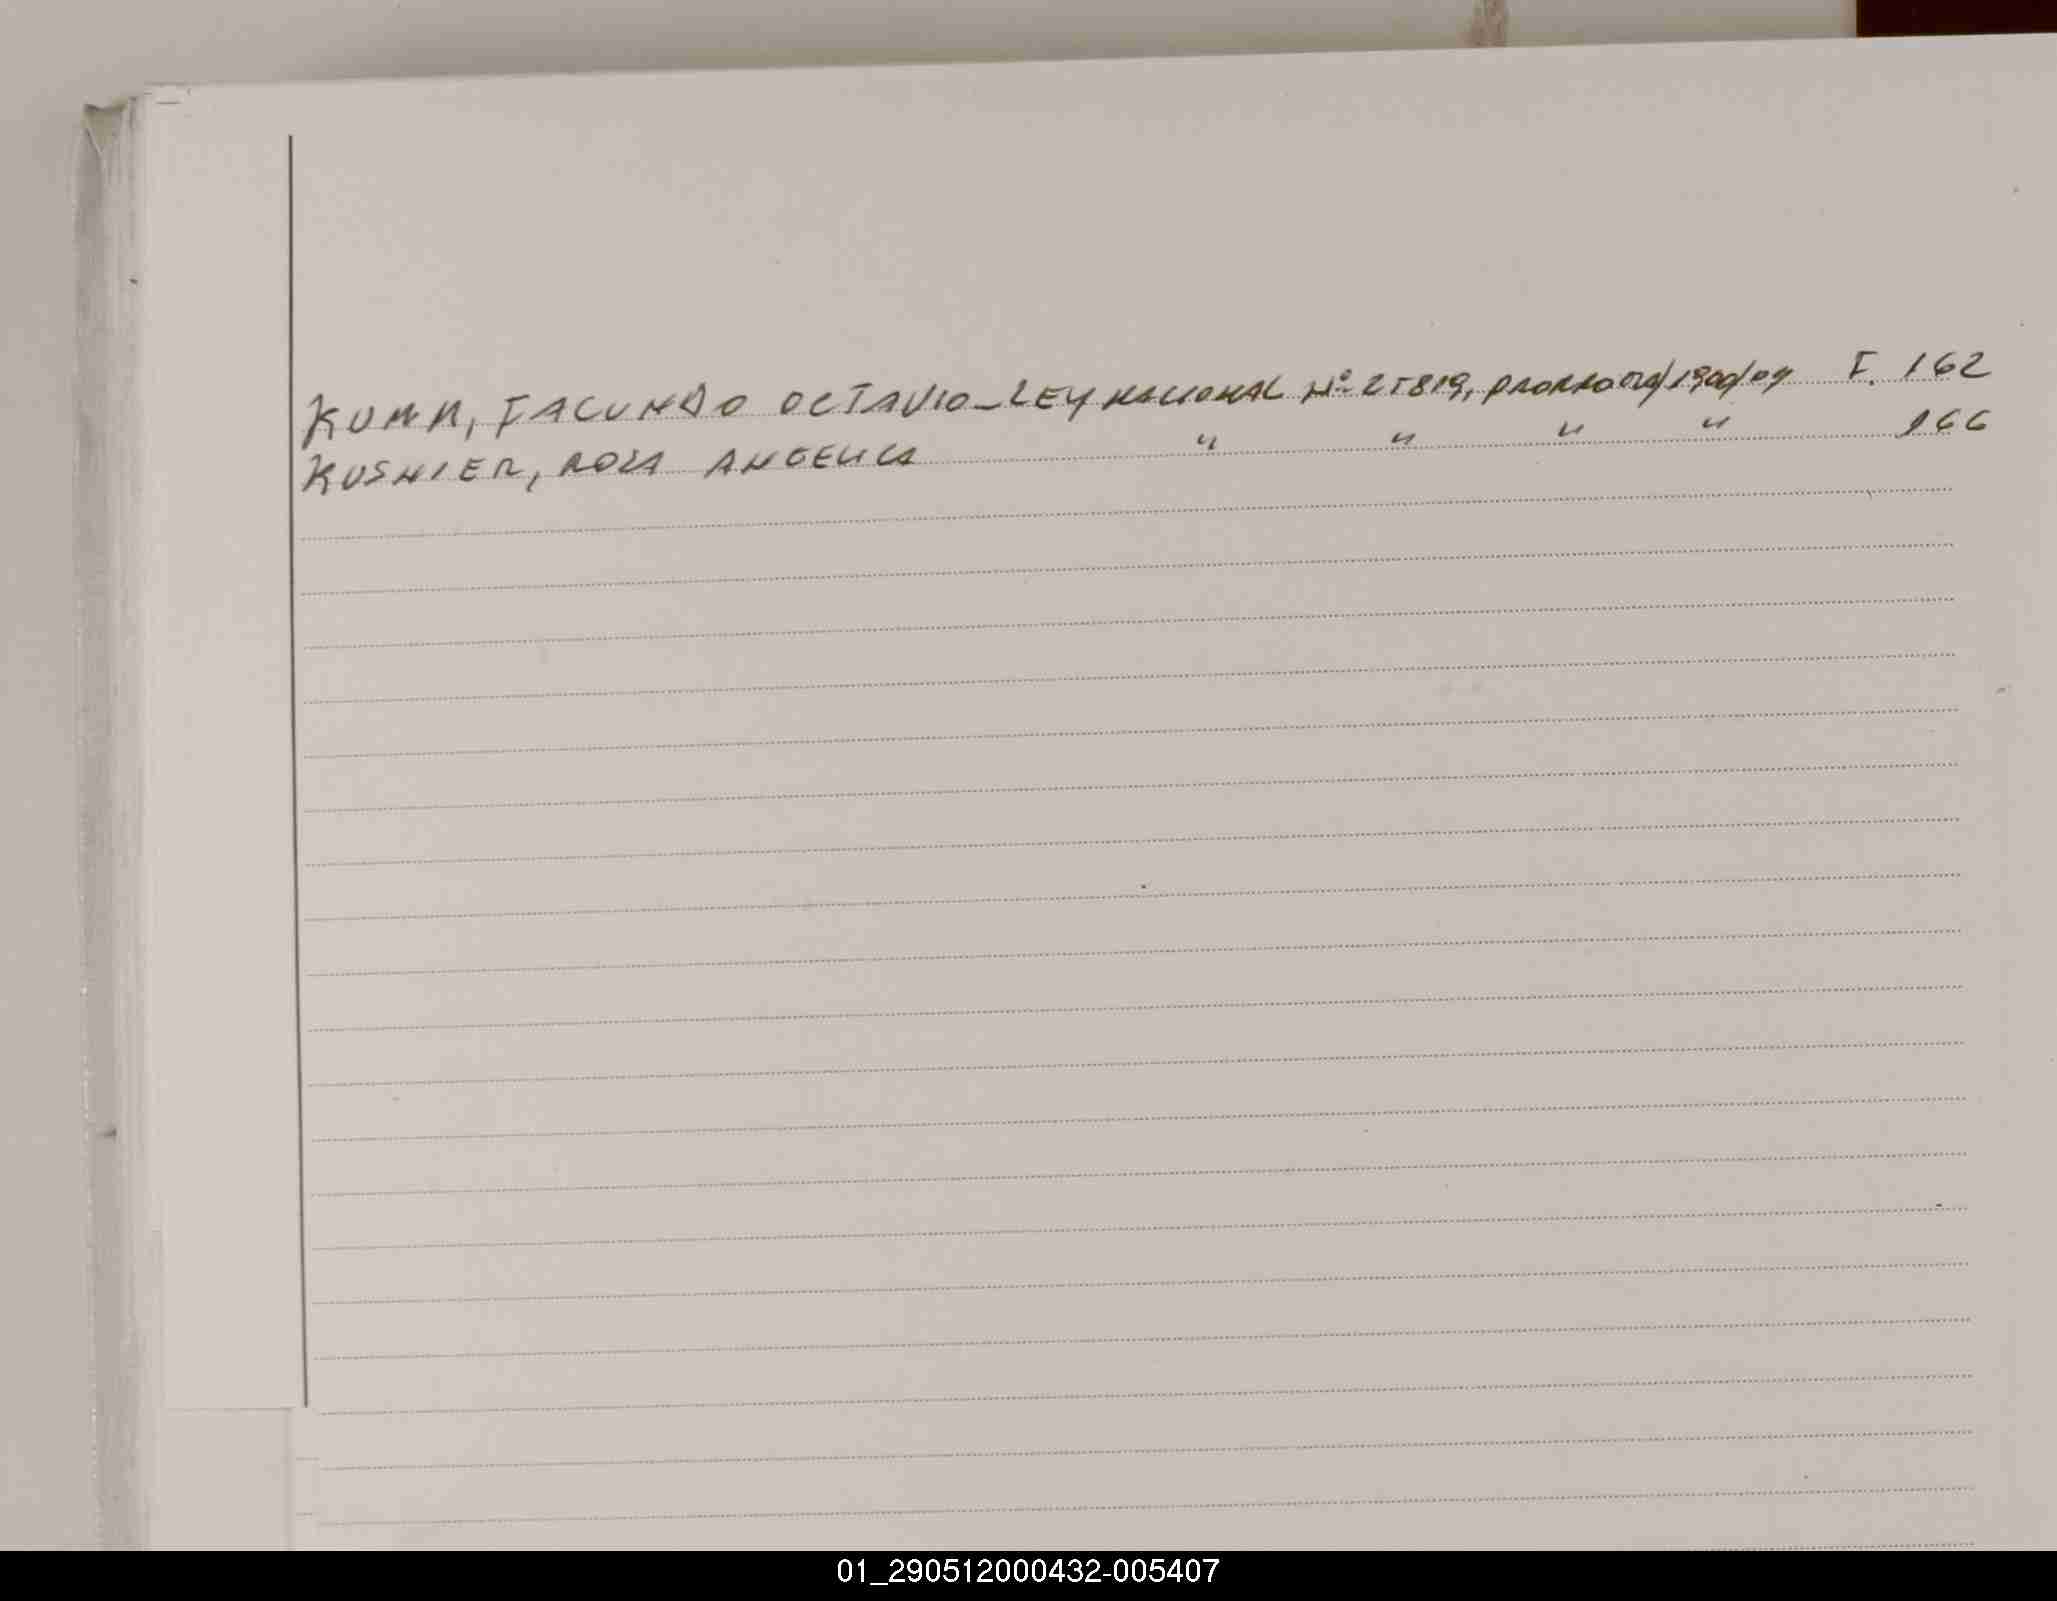 KUHN, FACUNDO OCTAVIO - LEY NACIONAL Nº 25819, 1900/09 F. 162
KUSNIER, ROSA ANGELICA " " " " 166
01_290512000432-005407